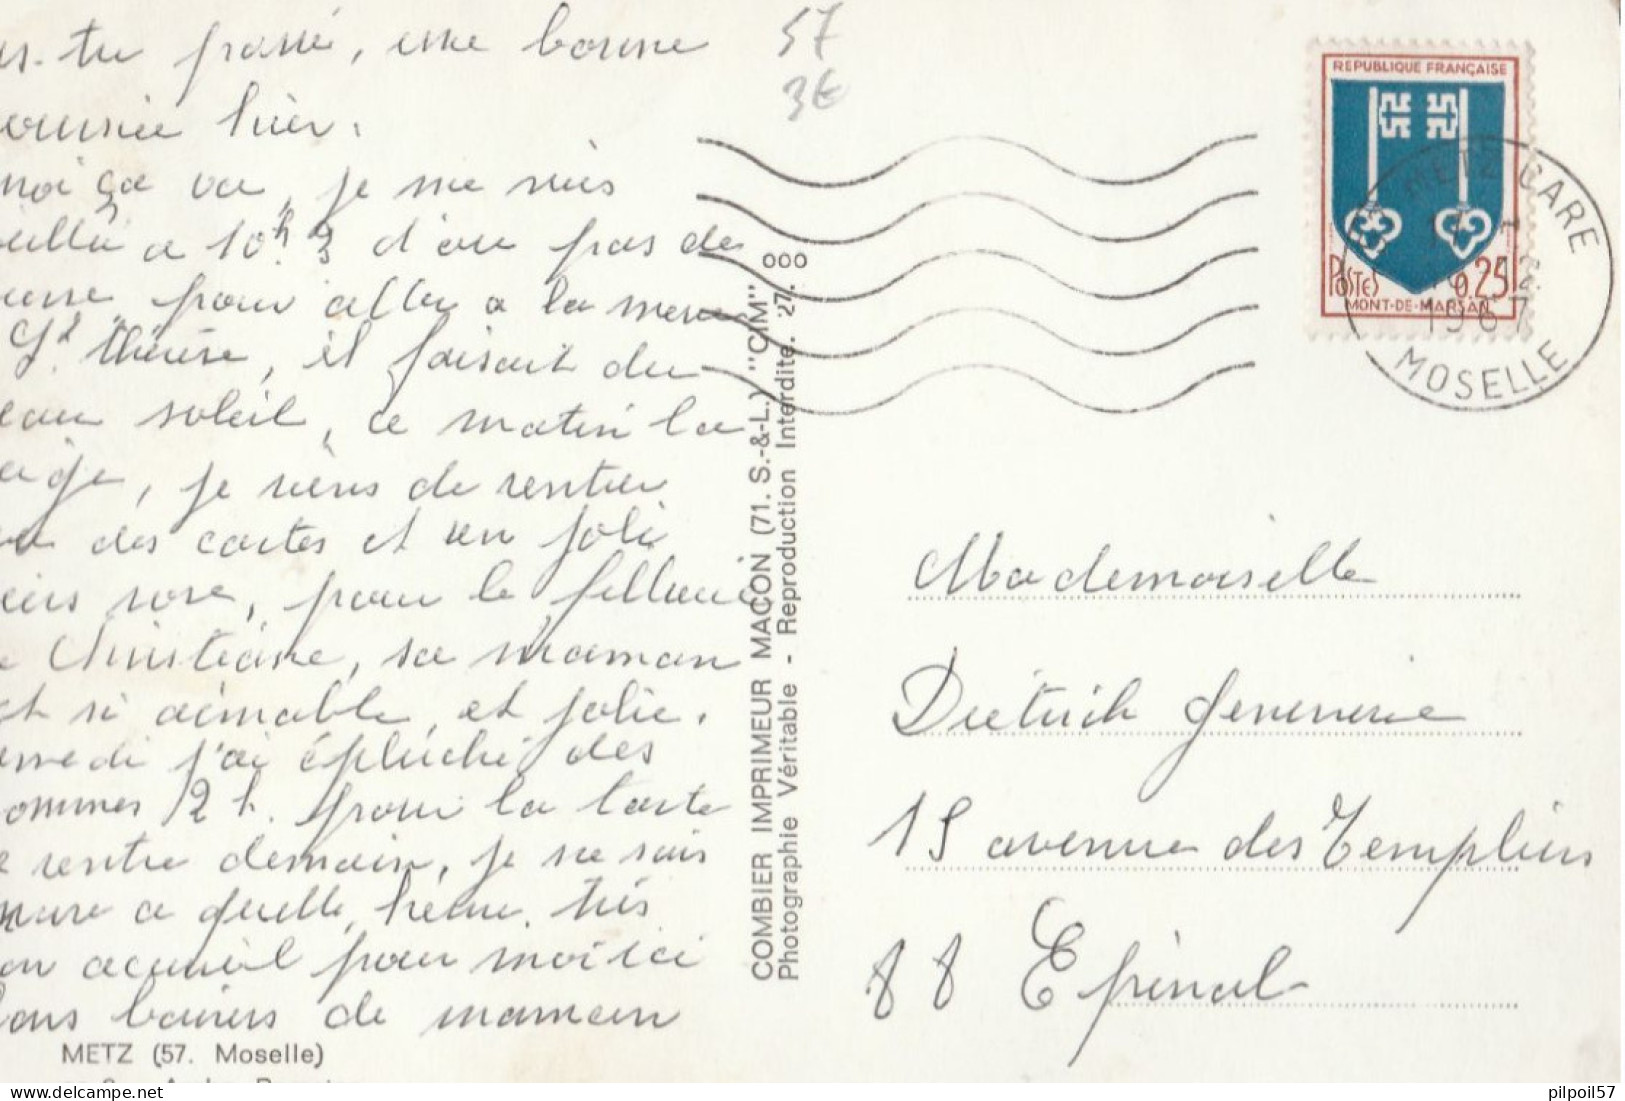 tu passé, une bonne
hier.
moi ça va, je me suis
a 10h. 3 d'ou pas de
pour aller a la messe
St. Thérèse, il faisait du
soleil, ce matin la
je viens de rentrer
des cartes et un joli
rose, pour le filleul
Christiane, sa maman
si aimable, et jolie.
j'ai épluché des
pommes 2 h. pour la tarte
rentre demain, je ne sais
a quelle heure, très
accueil pour moi ici
bons baisers de maman
METZ (57. Moselle)
57
3€
COMBIER IMPRIMEUR MACON (71. S.-&-L.) "CIM"
Photographie Véritable - Reproduction Interdite. 27.
ooo
REPUBLIQUE FRANÇAISE
POSTES 0.25
MONT-DE-MARSAN
METZ GARE
1967
MOSELLE
Mademoiselle
Dietrich Genevieve
15 avenue des Templiers
88 Epinal
pilpoil57